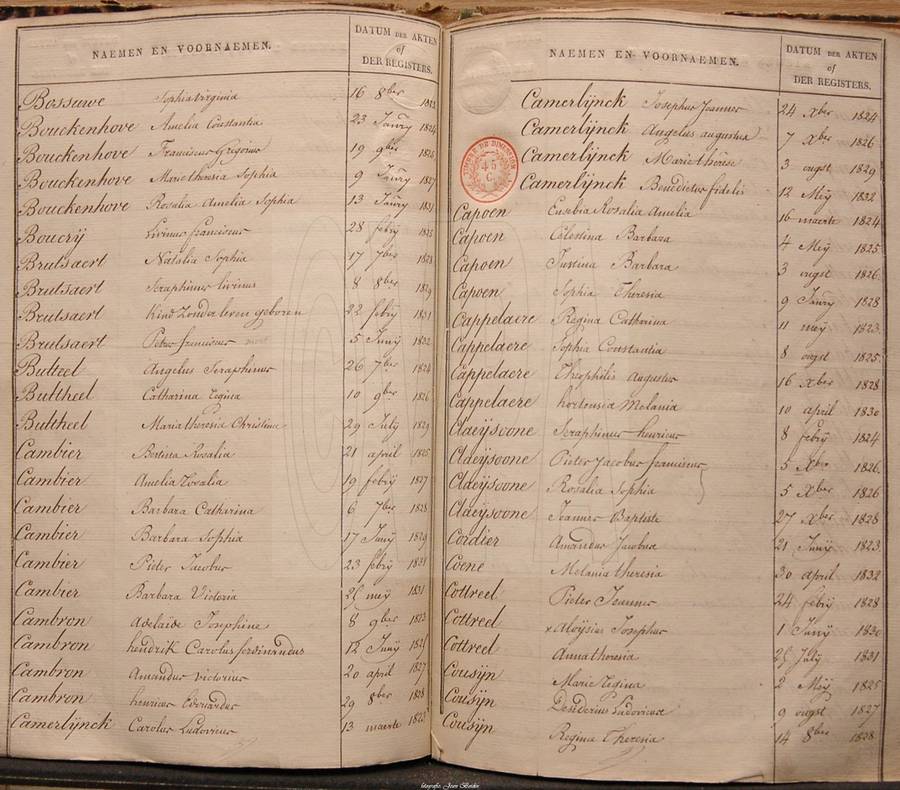 NAEMEN EN VOORNAEMEN.
DATUM DER AKTEN
of
DER REGISTERS.
Bossuwe Sophia Virginia 16 8ber 1822
Bouckenhove Amelia Constantia 23 Janry 1824
Bouckenhove Franciscus Grigorius 19 9ber 1825
Bouckenhove Marie theresia Sophia 9 Janry 1827
Bouckenhove Rosalia Amelia Sophia 13 Janry 1831
Boucrÿ Livinus franciscus 28 febrÿ 1825
Brutsaert Natalia Sophia 17 7ber 1828
Brutsaert Seraphinus livinus 8 8ber 1829
Brutsaert Kind Zonder leven geboren 22 febrÿ 1831
Brutsaert Petrus franciscus 5 Junÿ 1832
Butteel Angelus Seraphinus 26 7ber 1824
Buttheel Catharina Regina 10 9ber 1826
Buttheel Maria theresia Christina 29 July 1829
Cambier Bertina Rosalia 21 april 1825
Cambier Amelia Zoralia 19 febrÿ 1827
Cambier Barbara Catharina 6 7ber 1828
Cambier Barbara Sophia 17 Junÿ 1829
Cambier Pieter Jacobus 23 febrÿ 1831
Cambier Barbara Victoria meÿ 1831
Cambron Adelaide Josephine 8 9ber 1823
Cambron hendrik Carolus ferdinandus 12 Junÿ 1825
Cambron Amandus victorius 20 april 1827
Cambron henricus Edouardus 29 8ber 1828
Camerlÿnck Carolus Ludovicus 13 maerte 1823
NAEMEN EN VOORNAEMEN.
DATUM DER AKTEN
of
DER REGISTERS.
TIMBRE DE DIMENSION
45
C.
Camerlÿnck Josephus Joannes 24 Xber 1824
Camerlÿnck Angelus augustus 7 Xber 1826
Camerlÿnck Marie thérèse 3 ougst 1829
Camerlÿnck Benedictus fidelis 12 Meÿ 1832
Capoen Eusebia Rosalia Amelia 16 maerte 1824
Capoen Célestina Barbara 4 Meÿ 1825
Capoen Justina Barbara 3 ougst 1826
Capoen Sophia Theresia 9 Janrÿ 1828
Cappelaere Regina Catharina 11 meÿ 1823
Cappelaere Sophia Constantia 8 ougst 1825
Cappelaere Theophilis Augustus 16 Xber 1828
Cappelaere hortensia Melania 10 april 1830
Claeÿsoone Seraphinus henricus 8 febrÿ 1824
Claeÿsoone Pieter Jacobus franciscus 5 Xber 1826
Claeÿsoone Rosalia Sophia 5 Xber 1826
Claeÿsoone Joannes Baptiste 27 Xber 1828
Cordier Amandus Jacobus 21 Junÿ 1823
Coene Melania theresia 30 april 1832
Cottreel Pieter Joannes 24 febrÿ 1828
Cottreel Aloÿsius Josephus 1 Junÿ 1830
Cottreel Anna theresia 25 July 1831
Cousÿn Marie Regina 2 Meÿ 1825
Cousÿn Desiderius Ludovicus 9 ougst 1827
Cousÿn Regina Theresia 14 8ber 1828